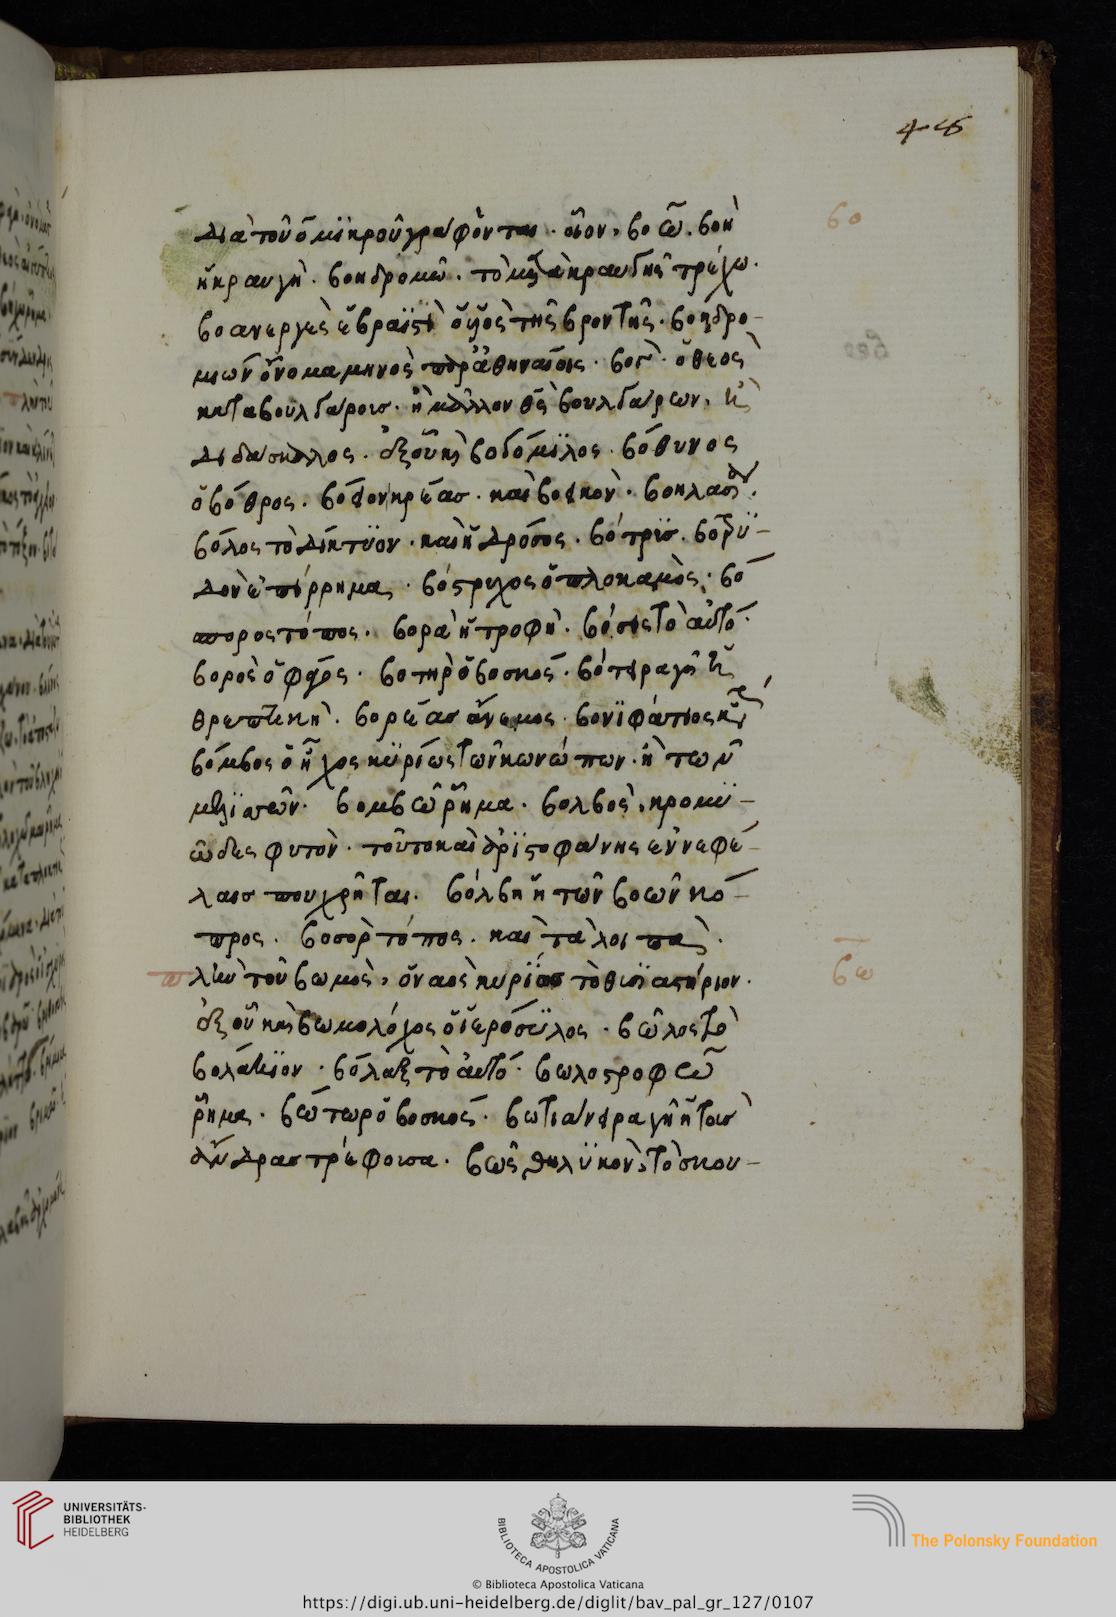 46
διὰ τοῦ ο μικροῦ γράφονται· οἷον, βοῶ. βοὴ
βο
ἡ κραυγὴ. βοηδρομῶ. τὸ μετὰ κραυγῆς τρέχω.
βοανεργὲς ἑβραϊστὶ ὁ υἱὸς τῆς βροντῆς. βοηδρο-
μιὼν ὄνομα μηνὸς παρ' ἀθηναίοις. ὁ θεὸς
κατὰ βουλγάροις. ἢ μᾶλλον βουλγάρων,
διδάσκαλος. ἐξ οὗ καὶ βογόμιλος. βόθυνος
ὁ βόθρος. κρέας. καὶ βοϊκὸν. βοηλασ
βόλος τὸ δίκτυον. καὶ ἡ δρόσος. βότρις. βοτρυ-
δὸν ἐπίρρημα, βόστρυχος ὁ πλόκαμος, βό
σπορος τόπος. βορὰ ἡ τροφὴ. βόσις τὸ αὐτό.
βορὸς ὁ φάγος. βοτὴρ ὁ βοσκός.
θρεπτικὴ. βορέας ἄνεμος. βονϊφάτιος
βόμβος ὁ ἦχος κυρίως τῶν κωνώπων. ἢ τῶν
μελισσῶν. βομβῶ ῥῆμα. βολβὸς, κρομυ-
ῶδες φυτὸν. τοῦτο καὶ ἀριστοφάνης ἐν νεφέ-
λαις που χρῆται. βόλβη ἡ τῶν βοῶν κό-
προς. βοσὸρ τόπος. καὶ τὰ λοιπα.
πλὴν τοῦ βωμὸς, ὁ ναὸς κυρίως τὸ θυσιαστήριον.
βω
ἐξ οὗ καὶ βωμολόχος ὁ ἱερόσυλος. βῶλος τὸ
βολάκιον. βόλαξ τὸ αὐτό. βωλοστροφῶ
ῥῆμα. βώτωρ ὁ βοσκός. βωτιάνειρα γῆ ἡ τοὺς
ἄνδρας τρέφουσα. βῶς θηλυκὸν, τὸ σκου-
UNIVERSITÄTS-
BIBLIOTHEK
HEIDELBERG
BIBLIOTECA APOSTOLICA VATICANA
The Polonsky Foundation
© Biblioteca Apostolica Vaticana
https://digi.ub.uni-heidelberg.de/diglit/bav_pal_gr_127/0107